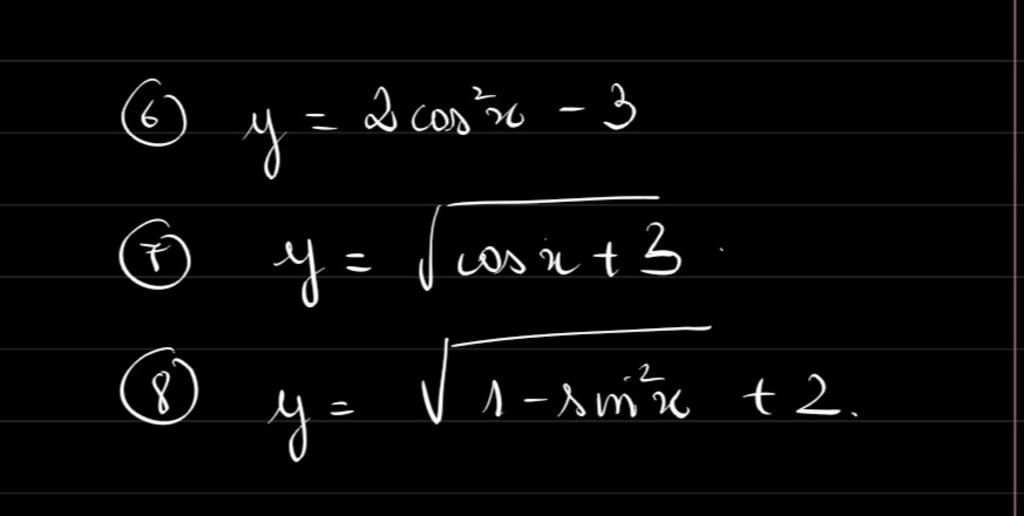 ⑥ y = 2cos²x - 3
⑦ y = √(cosx + 3)
⑧ y = √(1 - sin²x) + 2.